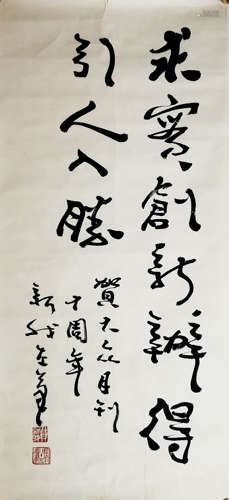 求實創新辦得
引人入勝
賀大众月刊
十周年